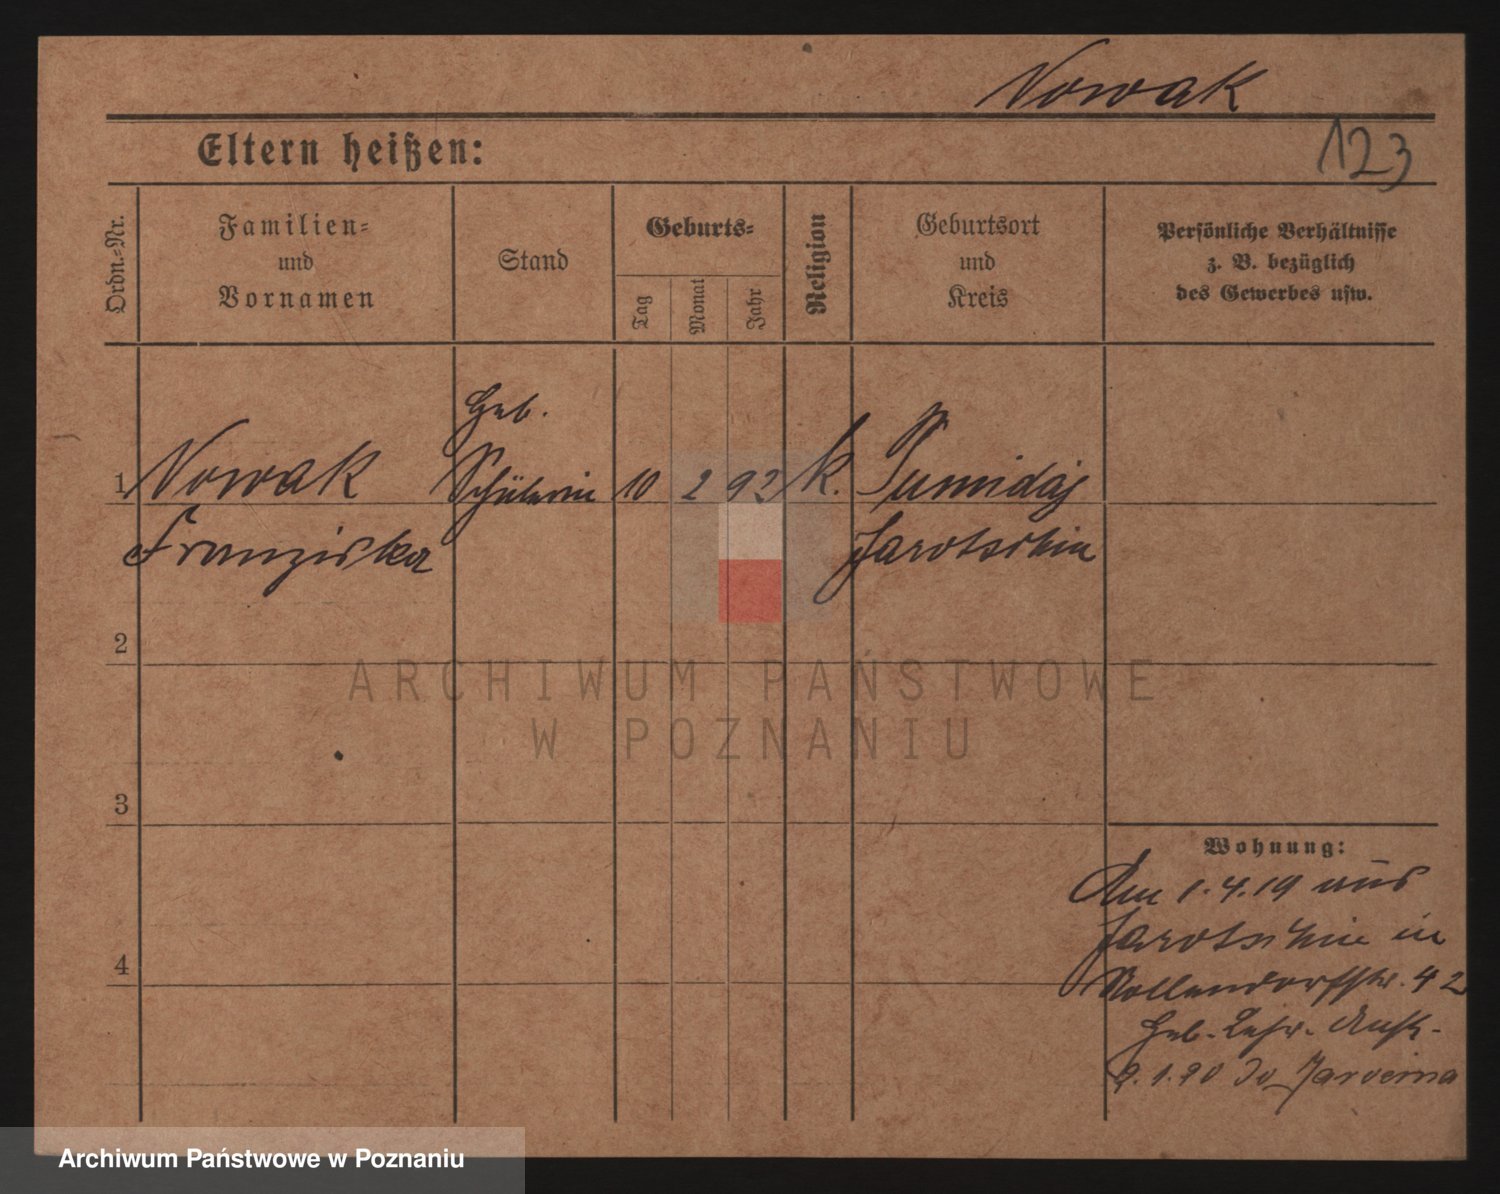 Nowak
123
Eltern heißen:
Ordn.-Nr.
Familien-
und
Vornamen
Stand
Geburts-
Tag
Monat
Jahr
Religion
Geburtsort
und
Kreis
Persönliche Verhältnisse
z. B. bezüglich
des Gewerbes usw.
Heb.
1 Nowak Schülerin 10 2 92 k.
Franziska Jarotschin
2
ARCHIWUM PAŃSTWOWE
W POZNANIU
3
Wohnung:
Am 1.4.19 aus
Jarotschin in
4
Nollendorfstr. 42
Heb. Lehr. Anst.
9.1.20 Jarocina
Archiwum Państwowe w Poznaniu